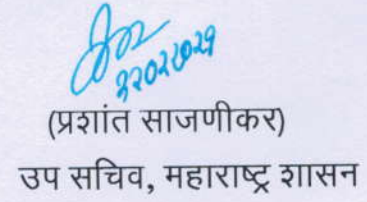 (प्रशांत साजणीकर)
उप सचिव, महाराष्ट्र शासन